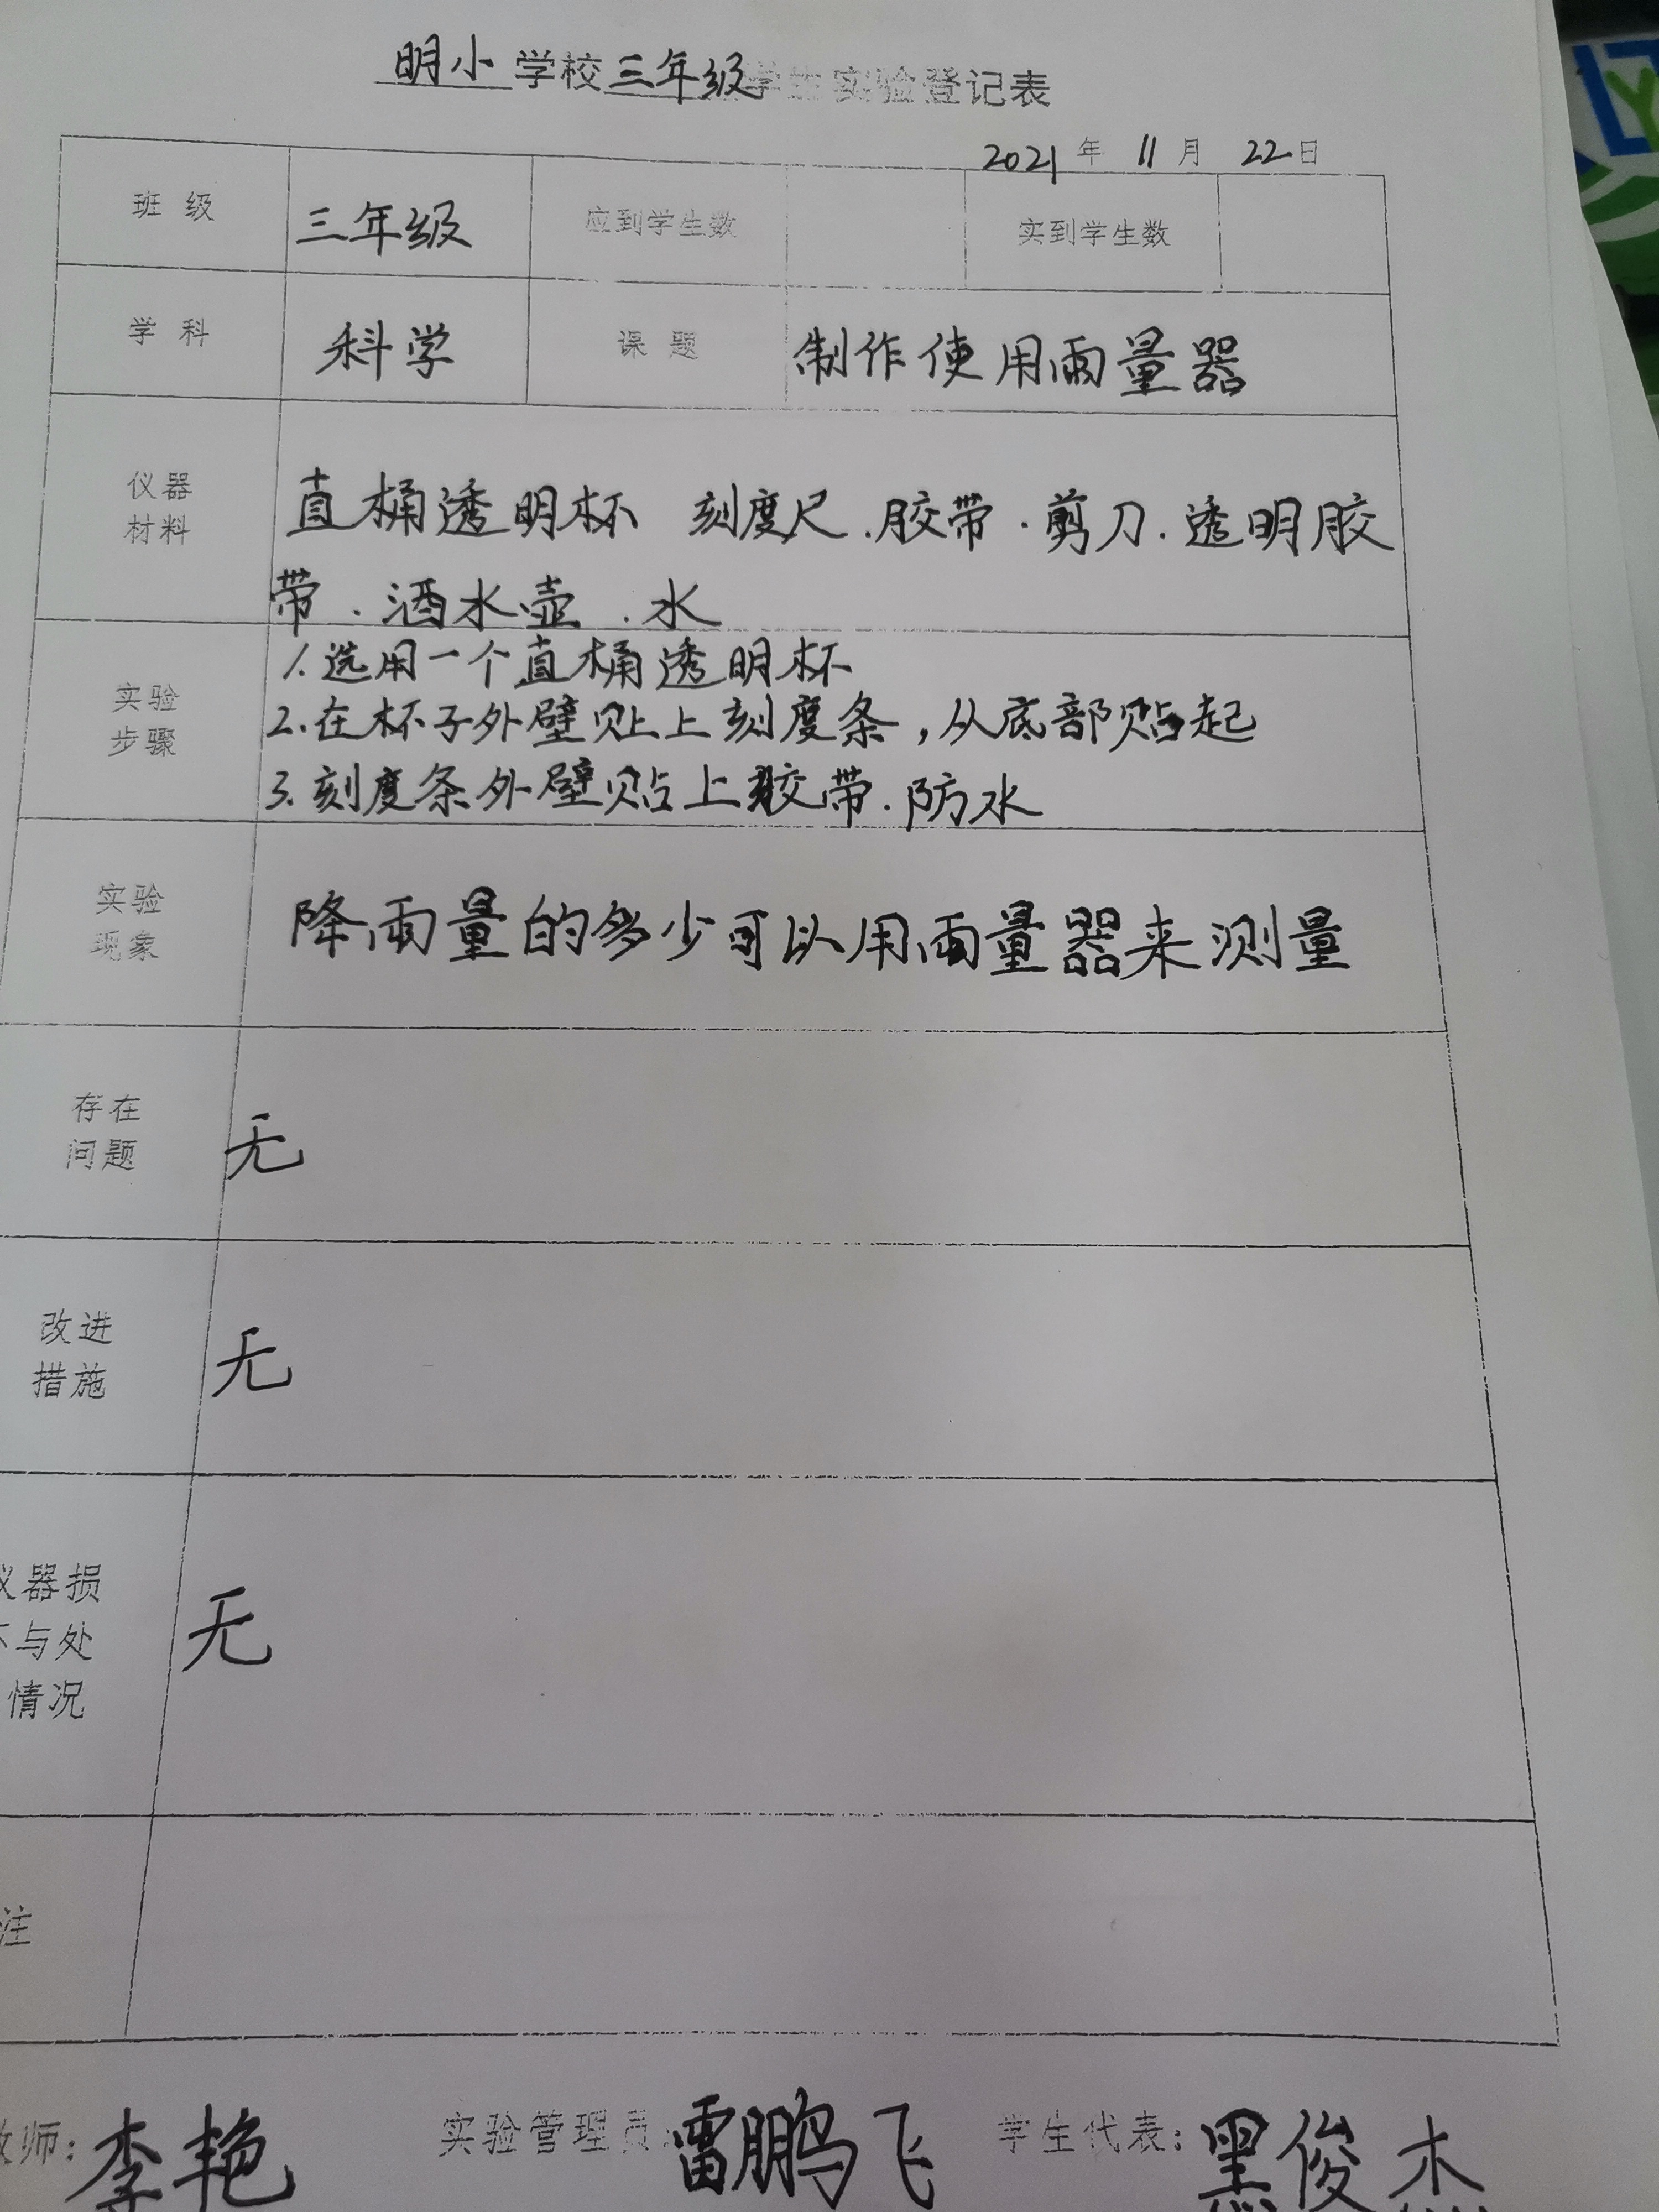 明小学校三年级学生实验登记表
2021年11月22日
班级 三年级 应到学生数 实到学生数
学科 科学 课题 制作使用雨量器
仪器
材料
直桶透明杯 刻度尺.胶带.剪刀.透明胶
带.酒水壶.水
实验
步骤
1.选用一个直桶透明杯
2.在杯子外壁贴上刻度条,从底部贴起
3.刻度条外壁贴上胶带.防水
实验
现象
降雨量的多少可以用雨量器来测量
存在
问题
无
改进
措施
无
仪器损
坏与处
情况
无
注
教师:李艳 实验管理员:雷鹏飞 学生代表:黑俊杰